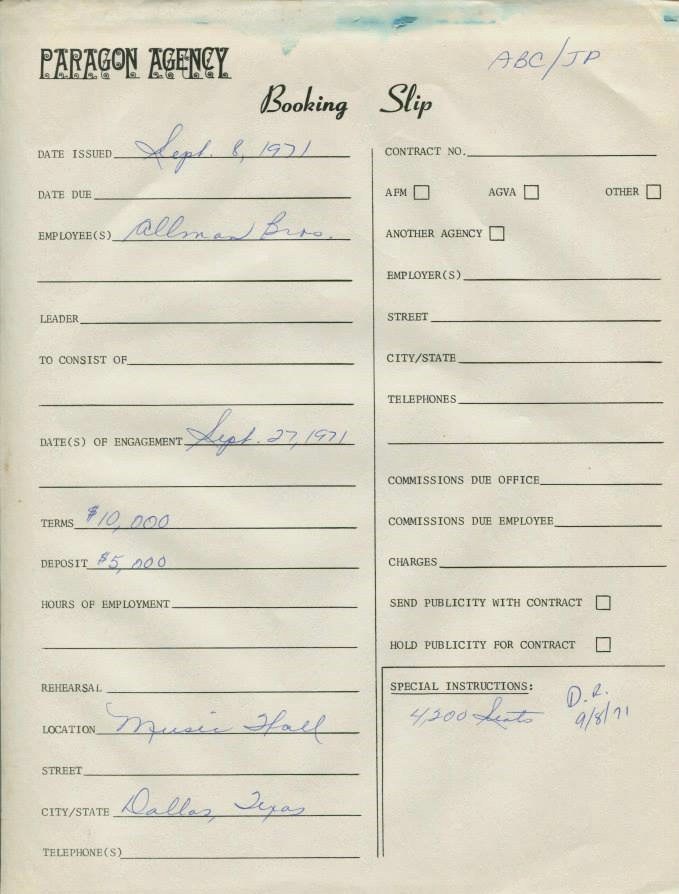 PARAGON AGENCY
ABC/JP
Booking Slip
DATE ISSUED Sept. 8, 1971
DATE DUE
EMPLOYEE(S) Allman Bros.
LEADER
TO CONSIST OF
DATE(S) OF ENGAGEMENT Sept. 27, 1971
TERMS $10,000
DEPOSIT $5,000
HOURS OF EMPLOYMENT
REHEARSAL
LOCATION Music Hall
STREET
CITY/STATE Dallas, Texas
TELEPHONE(S)
CONTRACT NO.
AFM AGVA OTHER
ANOTHER AGENCY
EMPLOYER(S)
STREET
CITY/STATE
TELEPHONES
COMMISSIONS DUE OFFICE
COMMISSIONS DUE EMPLOYEE
CHARGES
SEND PUBLICITY WITH CONTRACT
HOLD PUBLICITY FOR CONTRACT
SPECIAL INSTRUCTIONS:
4,200 Seats
D.R.
9/8/71